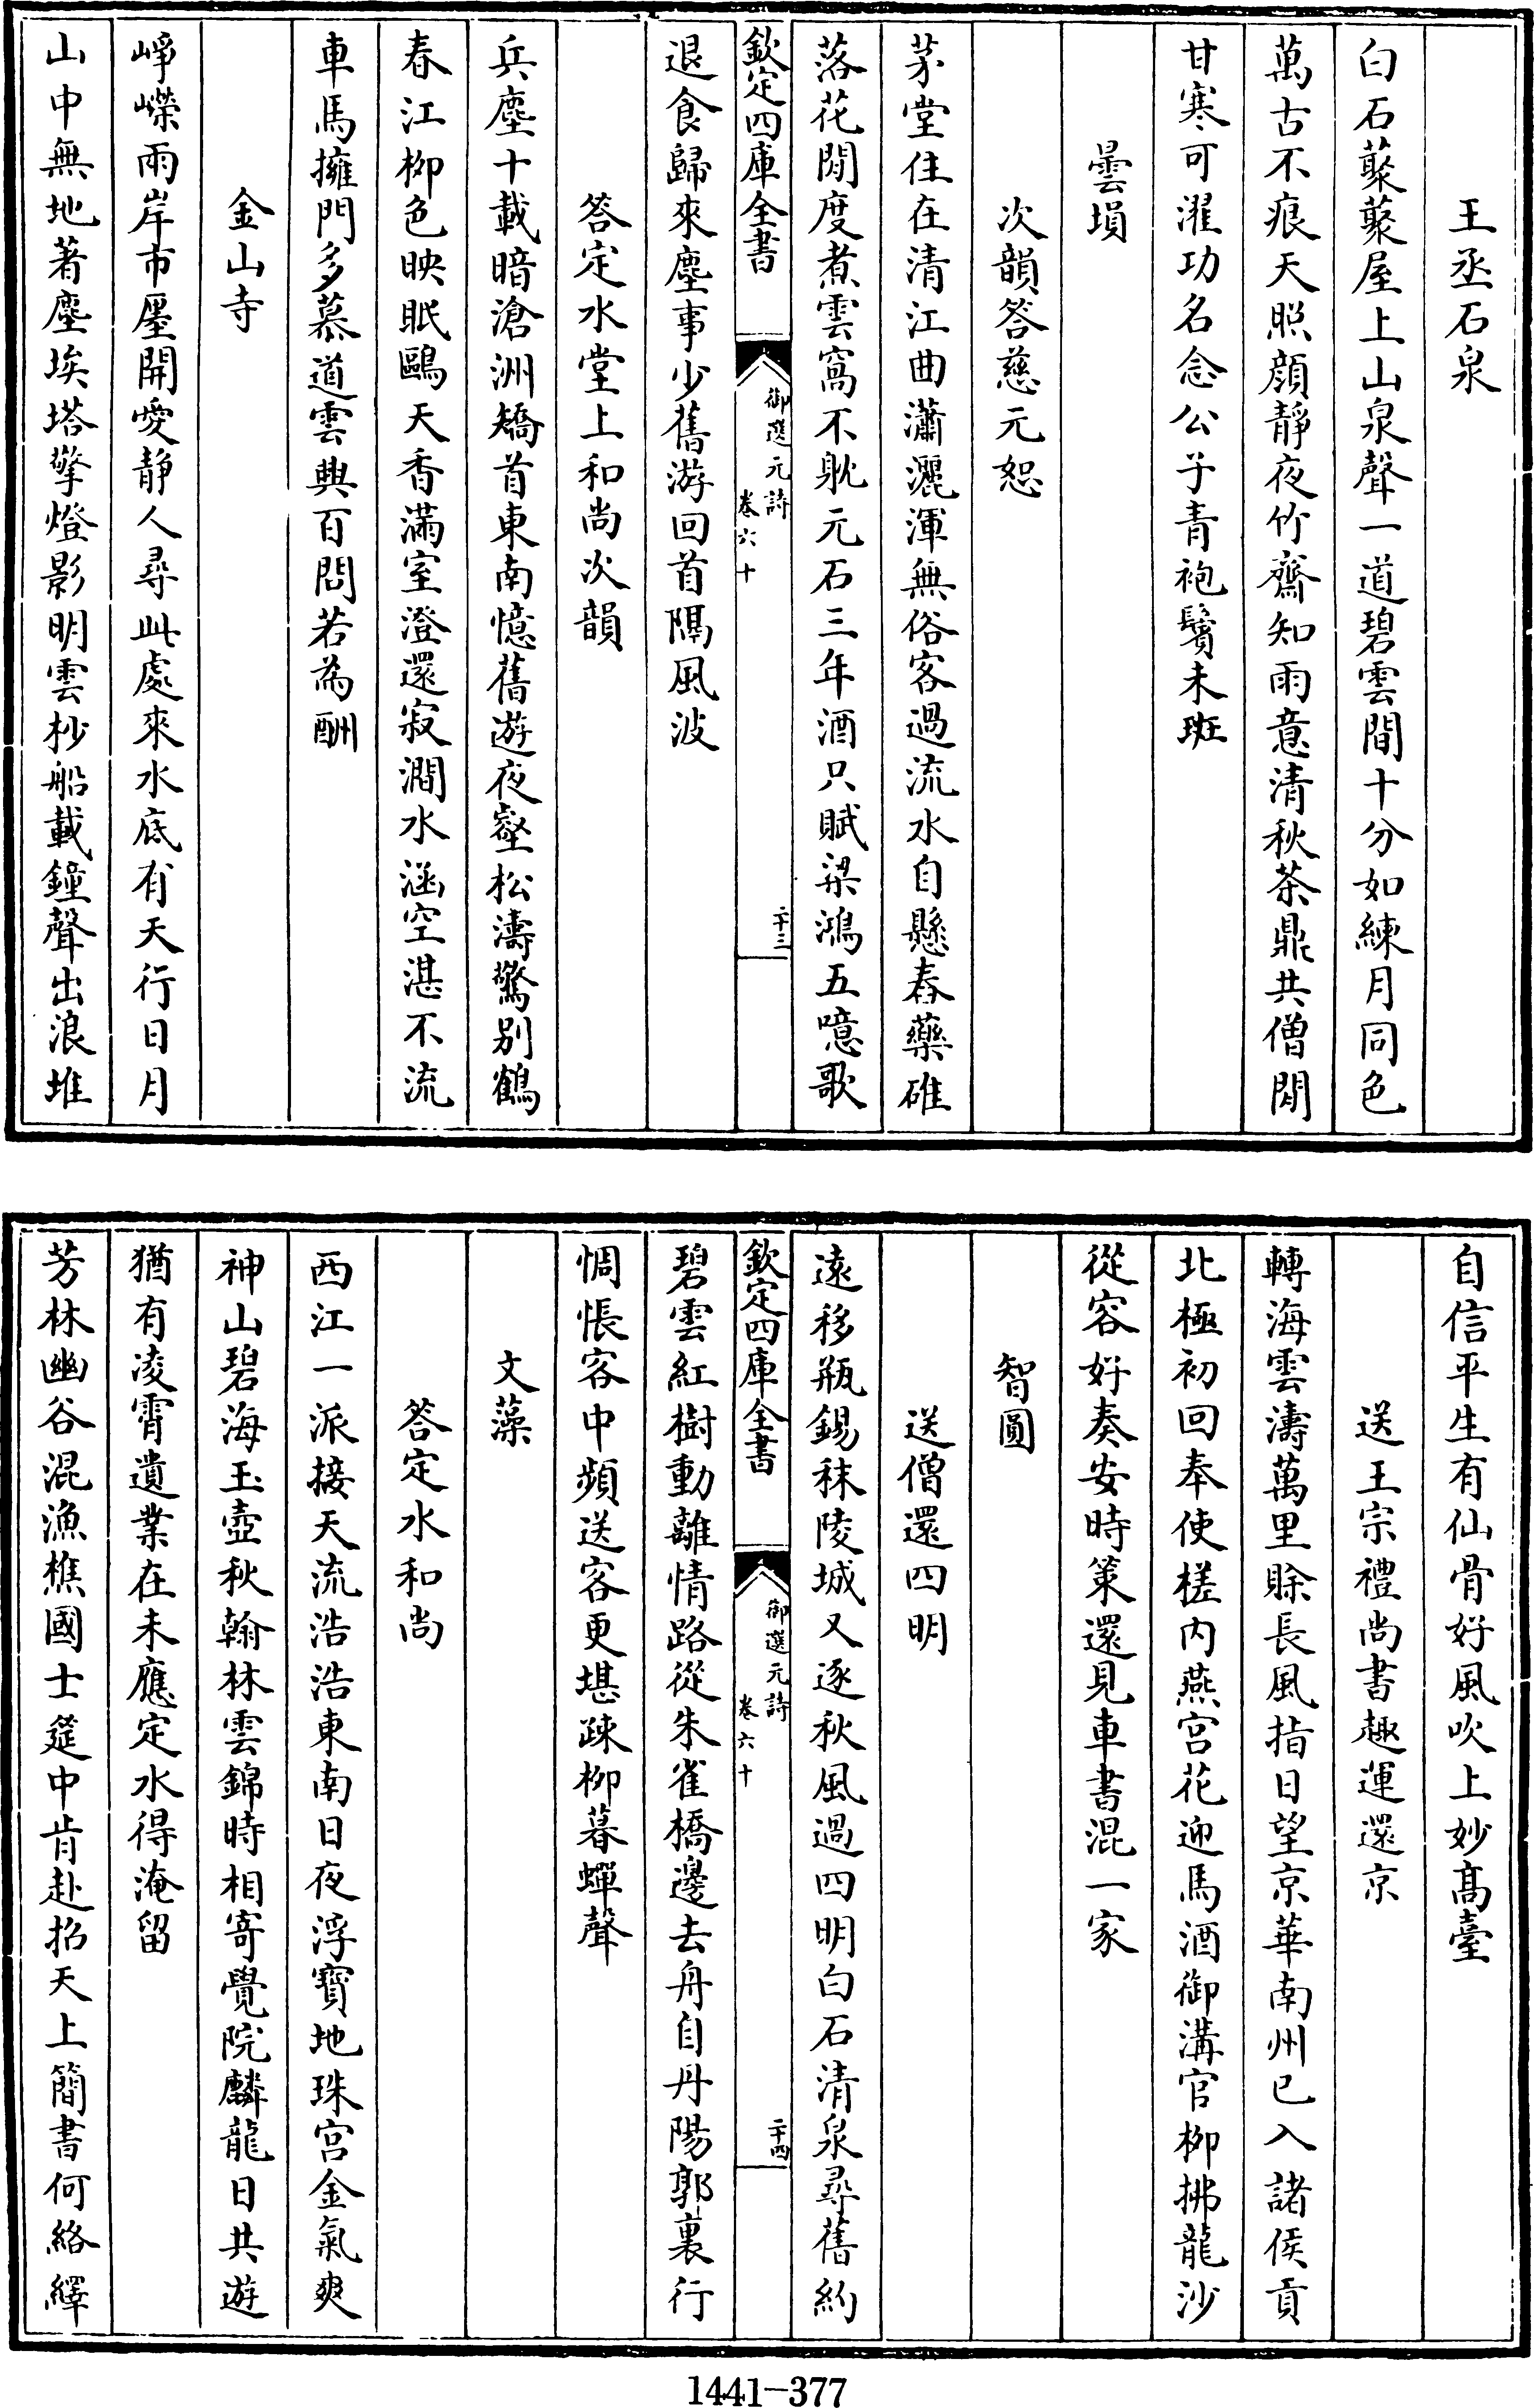 王丞石泉
白石藂藂屋上山泉聲一道碧雲間十分如練月同色
萬古不痕天照顔靜夜竹齋知雨意清秋茶鼎共僧閒
甘寒可濯功名念公子青袍鬢未斑
曇塤
次韻答慈元恕
茅堂住在清江曲瀟灑渾無俗客過流水自懸舂藥碓
落花閒度煮雲窩不耽元石三年酒只賦梁鴻五噫歌
欽定四庫全書
御選元詩
卷六十
二十三
退食歸來塵事少舊游回首隔風波
答定水堂上和尚次韻
兵塵十載暗滄洲矯首東南憶舊遊夜壑松濤驚别鶴
春江柳色映眠鷗天香滿室澄還寂澗水涵空湛不流
車馬擁門多慕道雲興百問若為酬
金山寺
崢嶸雨岸市廛開愛静人尋此處來水底有天行日月
山中無地著塵埃塔擎燈影明雲杪船載鐘聲出浪堆
自信平生有仙骨好風吹上妙髙臺
送王宗禮尚書趣運還京
轉海雲濤萬里賒長風指日望京華南州已入諸侯貢
北極初回奉使槎内燕宫花迎馬酒御溝官柳拂龍沙
從容好奏安時策還見車書混一家
智圓
送僧還四明
遠移瓶錫秣陵城又逐秋風過四明白石清泉尋舊約
欽定四庫全書
御選元詩
卷六十
二十四
碧雲紅樹動離情路從朱雀橋邊去舟自丹陽郭裏行
惆悵客中頻送客更堪疎柳暮蟬聲
文藻
答定水和尚
西江一派接天流浩浩東南日夜浮寳地珠宫金氣爽
神山碧海玉壺秋翰林雲錦時相寄覺院麟龍日共遊
猶有凌霄遺業在未應定水得淹留
芳林幽谷混漁樵國士筵中肯赴招天上簡書何絡繹
1441-377